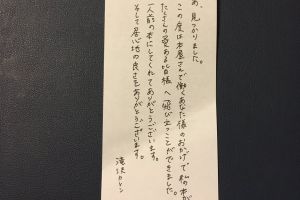 あ、見つかりました。
この度は本屋さんで働くあなた様のおかげで私の本が
たくさんの愛ある皆様へ飛び立つことができました。
一人前の本にしてくれてありがとうございます。
そして居心地の良さをありがとうございます。
滝沢カレン